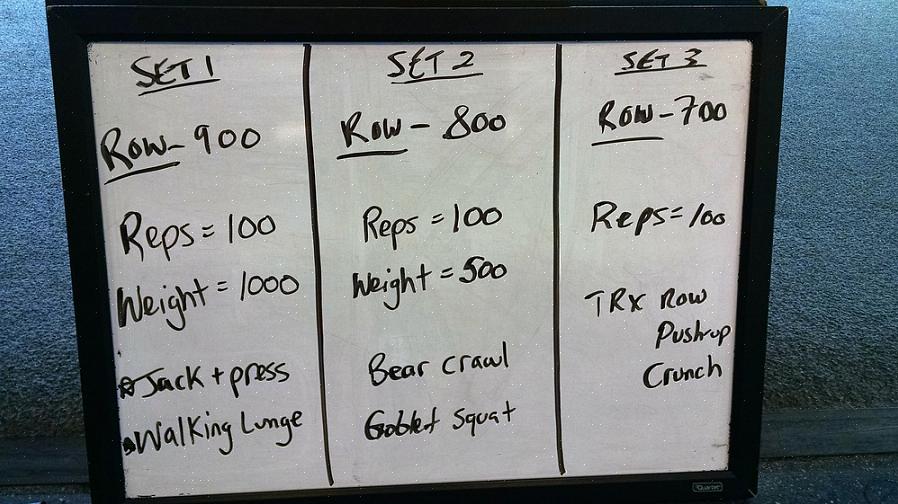 SET 1
Row - 900
Reps = 100
Weight = 1000
Jack + press
Walking Lunge
SET 2
Row - 800
Reps = 100
Weight = 500
Bear crawl
Goblet squat
SET 3
Row - 700
Reps = 100
TRX Row
Push-up
Crunch
Quartet